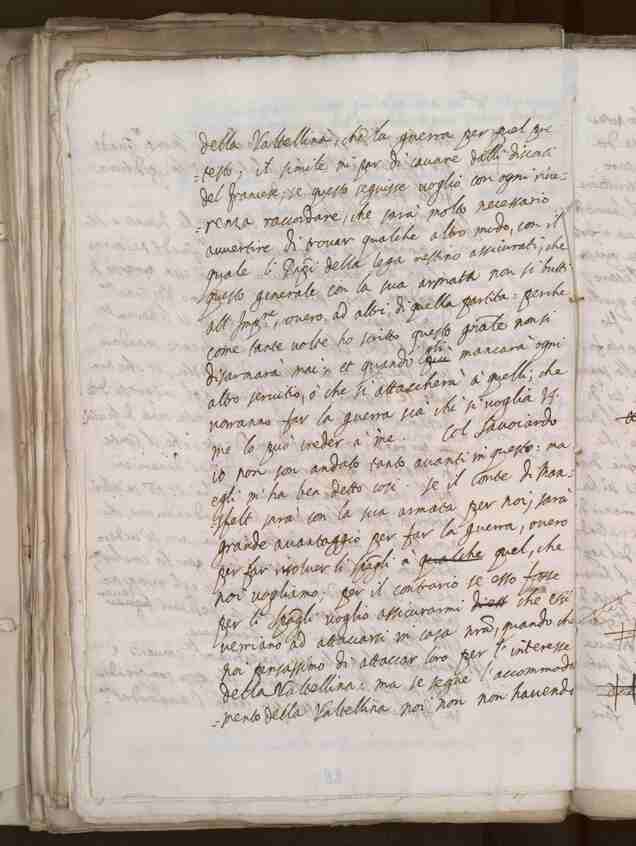 della Valtellina, che la guerra per quel pre-
-testo; il simile mi par di cavare dalli discorsi
del francese; se questo seguisse voglio con ogni rive-
-renza raccordare, che sarà molto necessario
avvertire di trovar qualche altro modo, con il
quale li della lega restino assicurati, che
questo generale con la sua armata non si butti
all' Impre, overo ad altri di quella partita: perche
come tante volte ho scritto questo gnale non si
disarmarà mai: et quando gli mancarà ogni
altro servitio, ò che si attaccherà à quelli, che
vorranno far la guerra sia chi si voglia
me lo può creder à me. Col Savoiardo
io non son andato tanto avanti in questo: ma
egli m'ha ben detto cosi. se il Conte di Man-
-sfelt sarà con la sua armata per noi, sarà
grande avantaggio per far la guerra, overo
per far risolver li spagli à qualche quel, che
noi vogliamo; per il contrario se esso fosse
per li spagli voglio assicurarmi che essi
verriano ad attaccarsi in casa nra, quando che
noi pensassimo di attaccar loro per l'interesse
della Valtellina: ma se segue l'accommoda-
-mento della Valtellina noi non non havendo